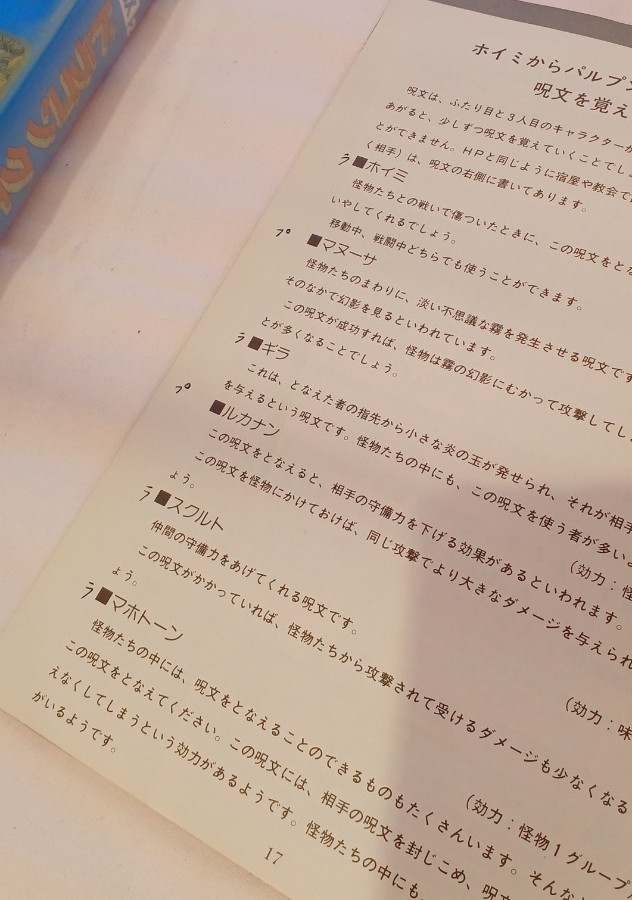 ホイミからパルプン
呪文を覚え
呪文は、ふたり目と3人目のキャラクターが
あがると、少しずつ呪文を覚えていくことでしょ
とができません。HPと同じように宿屋や教会で
(相手)は、呪文の右側に書いてあります。
ラ■ホイミ
怪物たちとの戦いで傷ついたときに、この呪文をとな
いやしてくれるでしょう。
移動中、戦闘中どちらでも使うことができます。
プ ■マヌーサ
怪物たちのまわりに、淡い不思議な霧を発生させる呪文です
そのなかで幻影を見るといわれています。
この呪文が成功すれば、怪物は霧の幻影にむかって攻撃してし
とが多くなることでしょう。
ラ■ギラ
これは、となえた者の指先から小さな炎の玉が発せられ、それが相手
を与えるという呪文です。怪物たちの中にも、この呪文を使う者が多いよ
(効力:怪
プ ■ルカナン
この呪文をとなえると、相手の守備力を下げる効果があるといわれます。
この呪文を怪物にかけておけば、同じ攻撃でより大きなダメージを与えられ
ょう。
ラ■スクルト
(効力:味
仲間の守備力をあげてくれる呪文です。
この呪文がかかっていれば、怪物たちから攻撃されて受けるダメージも少なくなる
ょう。
ラ■マホトーン
(効力:怪物1グループ
怪物たちの中には、呪文をとなえることのできるものもたくさんいます。そんな
この呪文をとなえてください。この呪文には、相手の呪文を封じこめ、呪文
えなくしてしまうという効力があるようです。怪物たちの中にも
がいるようです。
17